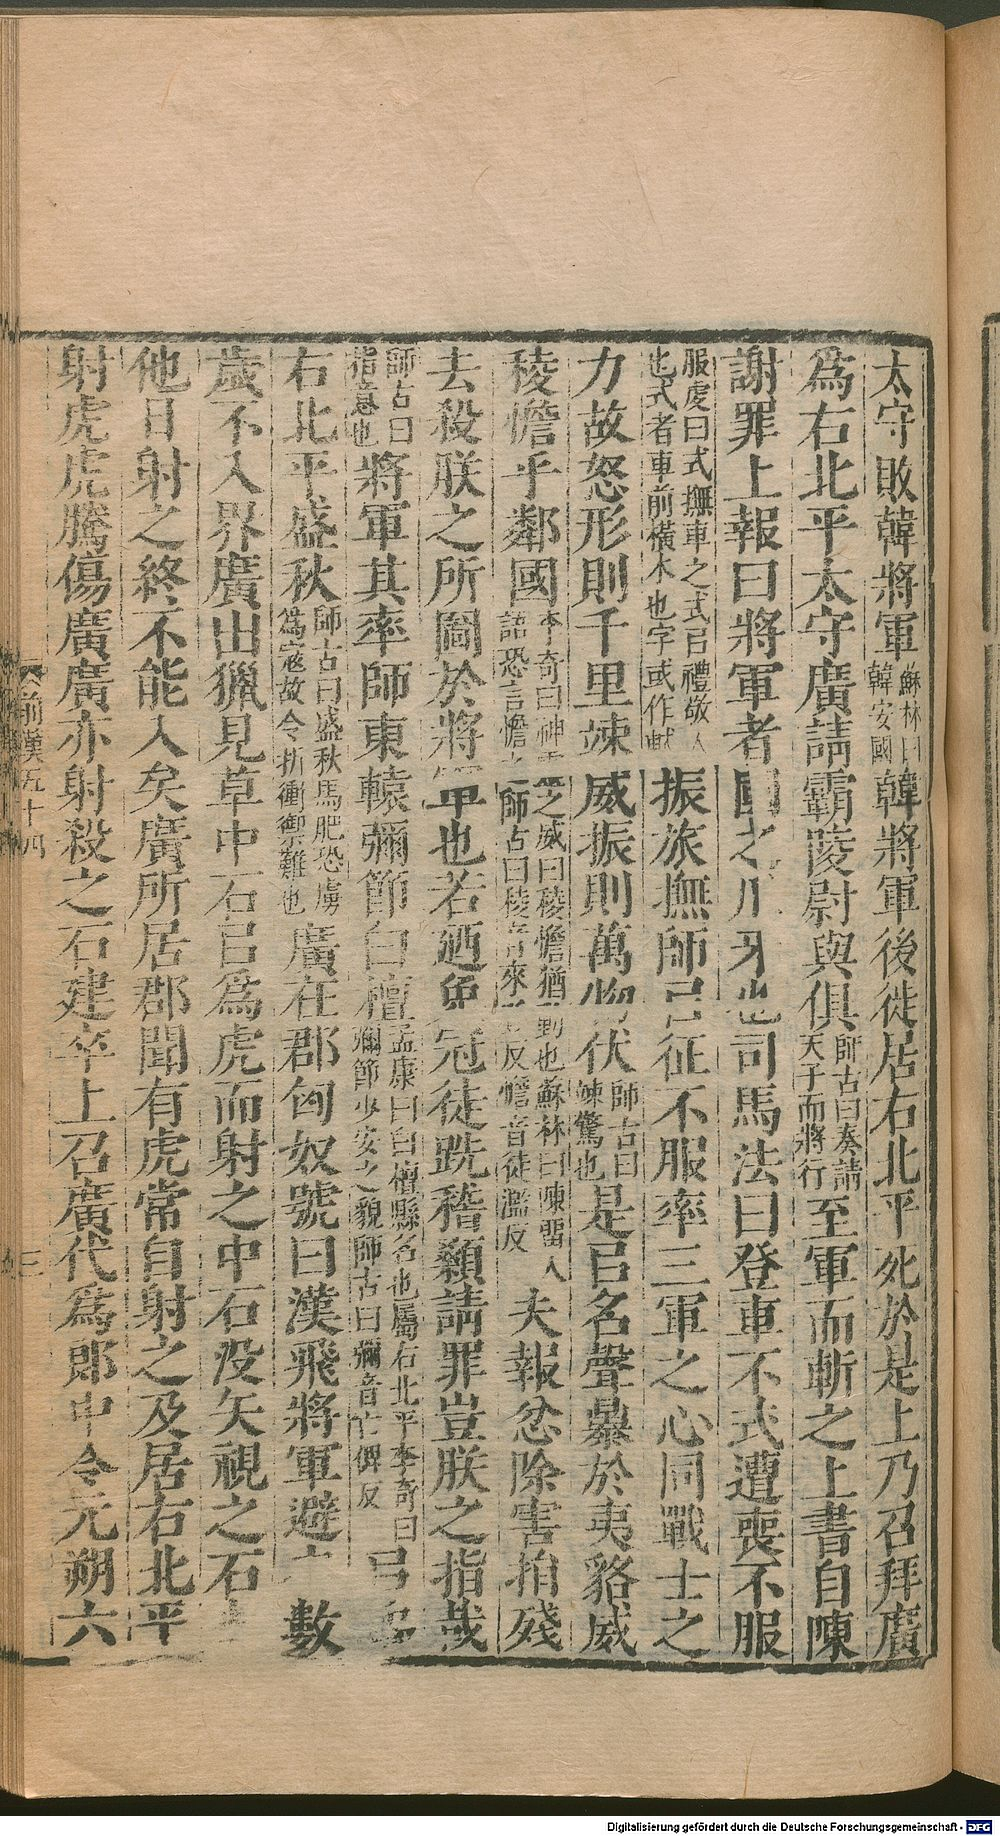 太守敗韓將軍蘇林曰韓安國韓將軍後徙居右北平死於是上乃召拜廣
爲右北平太守廣請霸陵尉與俱師古曰奏請天子而將行至軍而斬之上書自陳
謝罪上報曰將軍者國之爪牙也司馬法曰登車不式遭喪不服
服虔曰式撫車之式㠯禮敬人也式者車前橫木也字或作軾振旅撫師㠯征不服率三軍之心同戰士之
力故怒形則千里竦威振則萬物伏師古曰竦驚也是㠯名聲暴於夷貉威
稜憺乎鄰國李奇曰神靈之威曰稜憺猶動也蘇林曰陳留人語恐言憺之師古曰稜音來反憺音徒濫反夫報忿除害捐殘
去殺朕之所圖於將軍也若廼免冠徒跣稽顙請罪豈朕之指哉
師古曰指意也將軍其率師東轅彌節白檀孟康曰白檀縣名也屬右北平李奇曰彌節少安之貌師古曰彌音亡俾反㠯臨
右北平盛秋師古曰盛秋馬肥恐虜爲寇故令折衝禦難也廣在郡匈奴號曰漢飛將軍避數
歲不入界廣出獵見草中石㠯爲虎而射之中石沒矢視之石
他日射之終不能入矣廣所居郡聞有虎常自射之及居右北平
射虎虎騰傷廣廣亦射殺之石建卒上召廣代爲郎中令元朔六
前漢五十四
三
Digitalisierung gefördert durch die Deutsche Forschungsgemeinschaft - DFG